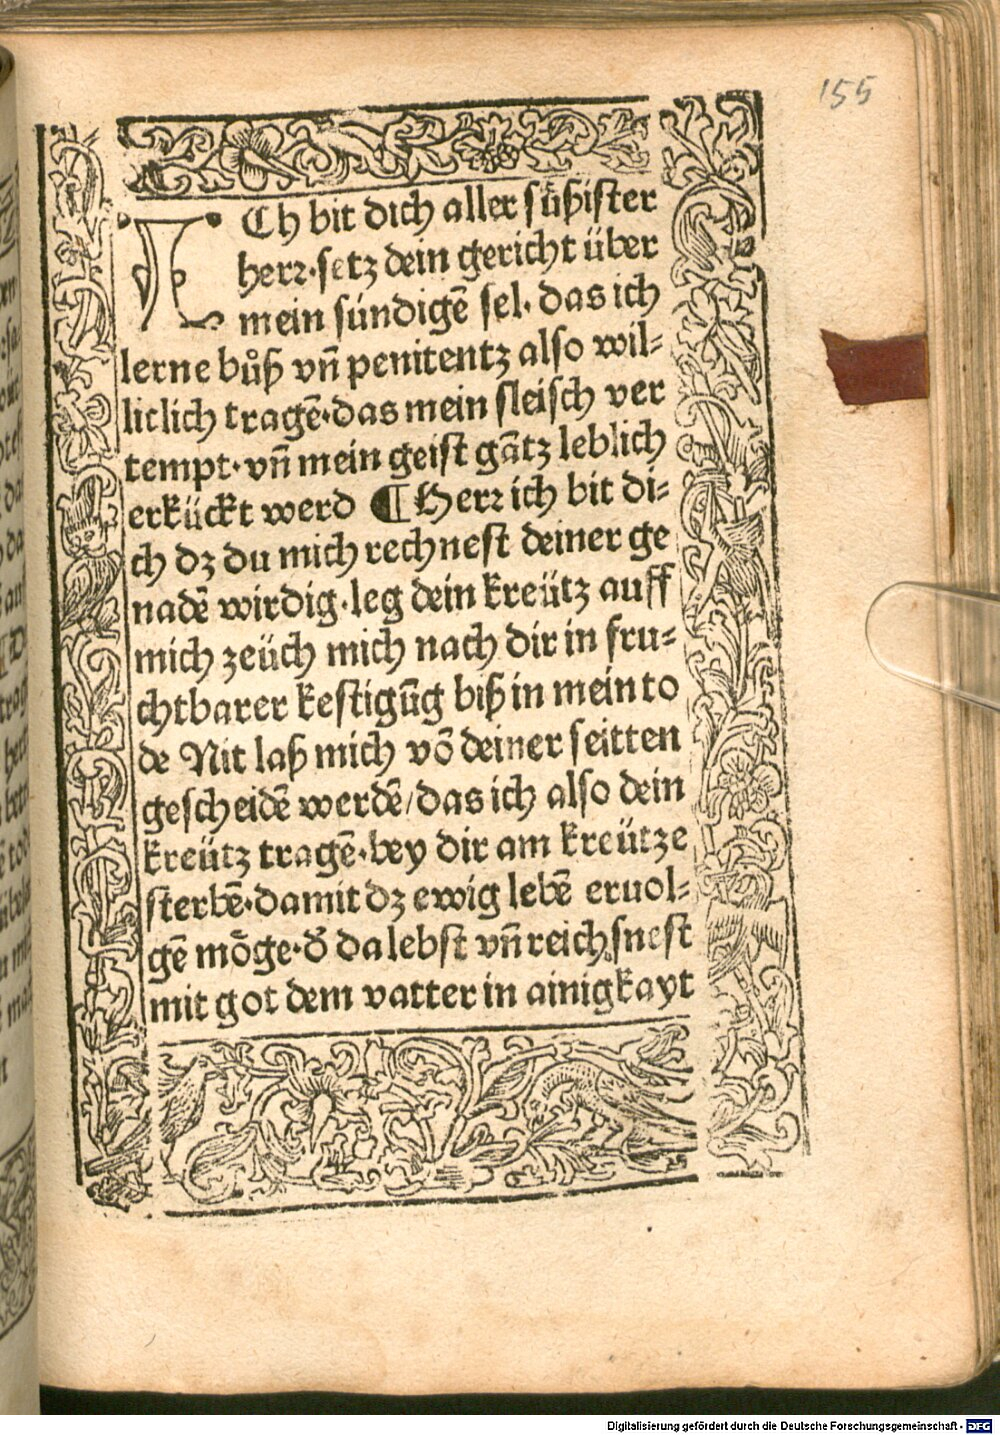 155
ICh bit dich aller süßister
herr·setz dein gericht über
mein sündigē sel· das ich
lerne bůß vn̄ penitentz also wil⸗
liclich tragē·das mein fleisch ver
tempt·vn̄ mein geist gātz leblich
erkückt werd ¶ Herr ich bit di⸗
ch dz du mich rechnest deiner ge
nadē wirdig·leg dein kreütz auff
mich zeüch mich nach dir in fru⸗
chtbarer kestigūg biß in mein to
de Nit laß mich vō deiner seitten
gescheidē werdē/das ich also dein
kreütz tragē·bey dir am kreütze
sterbē·damit dz ewig lebē eruol⸗
gē mȫge·d̓ da lebst vn̄ reichsnest
mit got dem vatter in ainigkayt
Digitalisierung gefördert durch die Deutsche Forschungsgemeinschaft - DFG